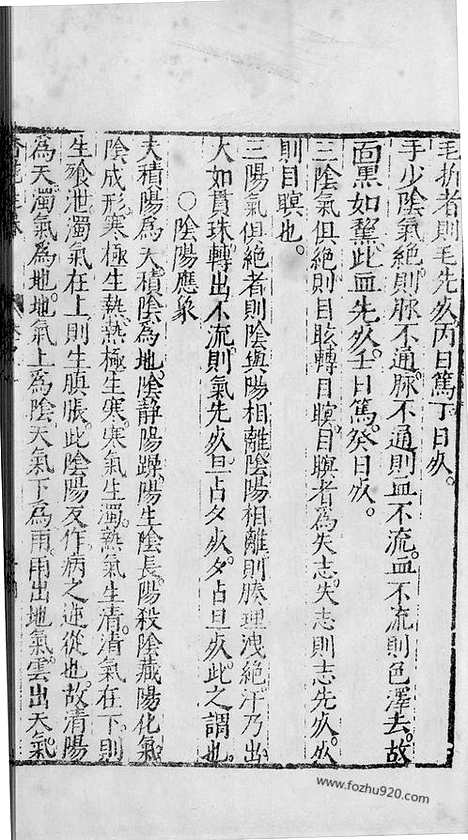 毛折者則毛先死丙日篤丁日死。
手少陰氣絶則脉不通。脉不通則血不流。血不流則色澤去。故
面黑如黧此血先死。壬日篤。癸日死。
三陰氣俱絶則目眩轉目瞑。目瞑者為失志。失志則志先死。死
則目瞑也。
三陽氣俱絶者則陰與陽相離。陰陽相離則腠理洩絶汗乃出
大如貫珠轉出不流。則氣先死。旦占夕死。夕占旦死。此之謂也。
○陰陽應象
夫積陽為天。積陰為地。陰静陽躁。陽生陰長。陽殺陰藏。陽化氣
陰成形。寒極生熱。熱極生寒。寒氣生濁。熱氣生清。清氣在下。則
生飧泄。濁氣在上。則生䐜脹。此陰陽反作。病之逆從也。故清陽
為天。濁氣為地。地氣上為陰。天氣下為雨。雨出地氣。雲出天氣
www.fozhu920.com